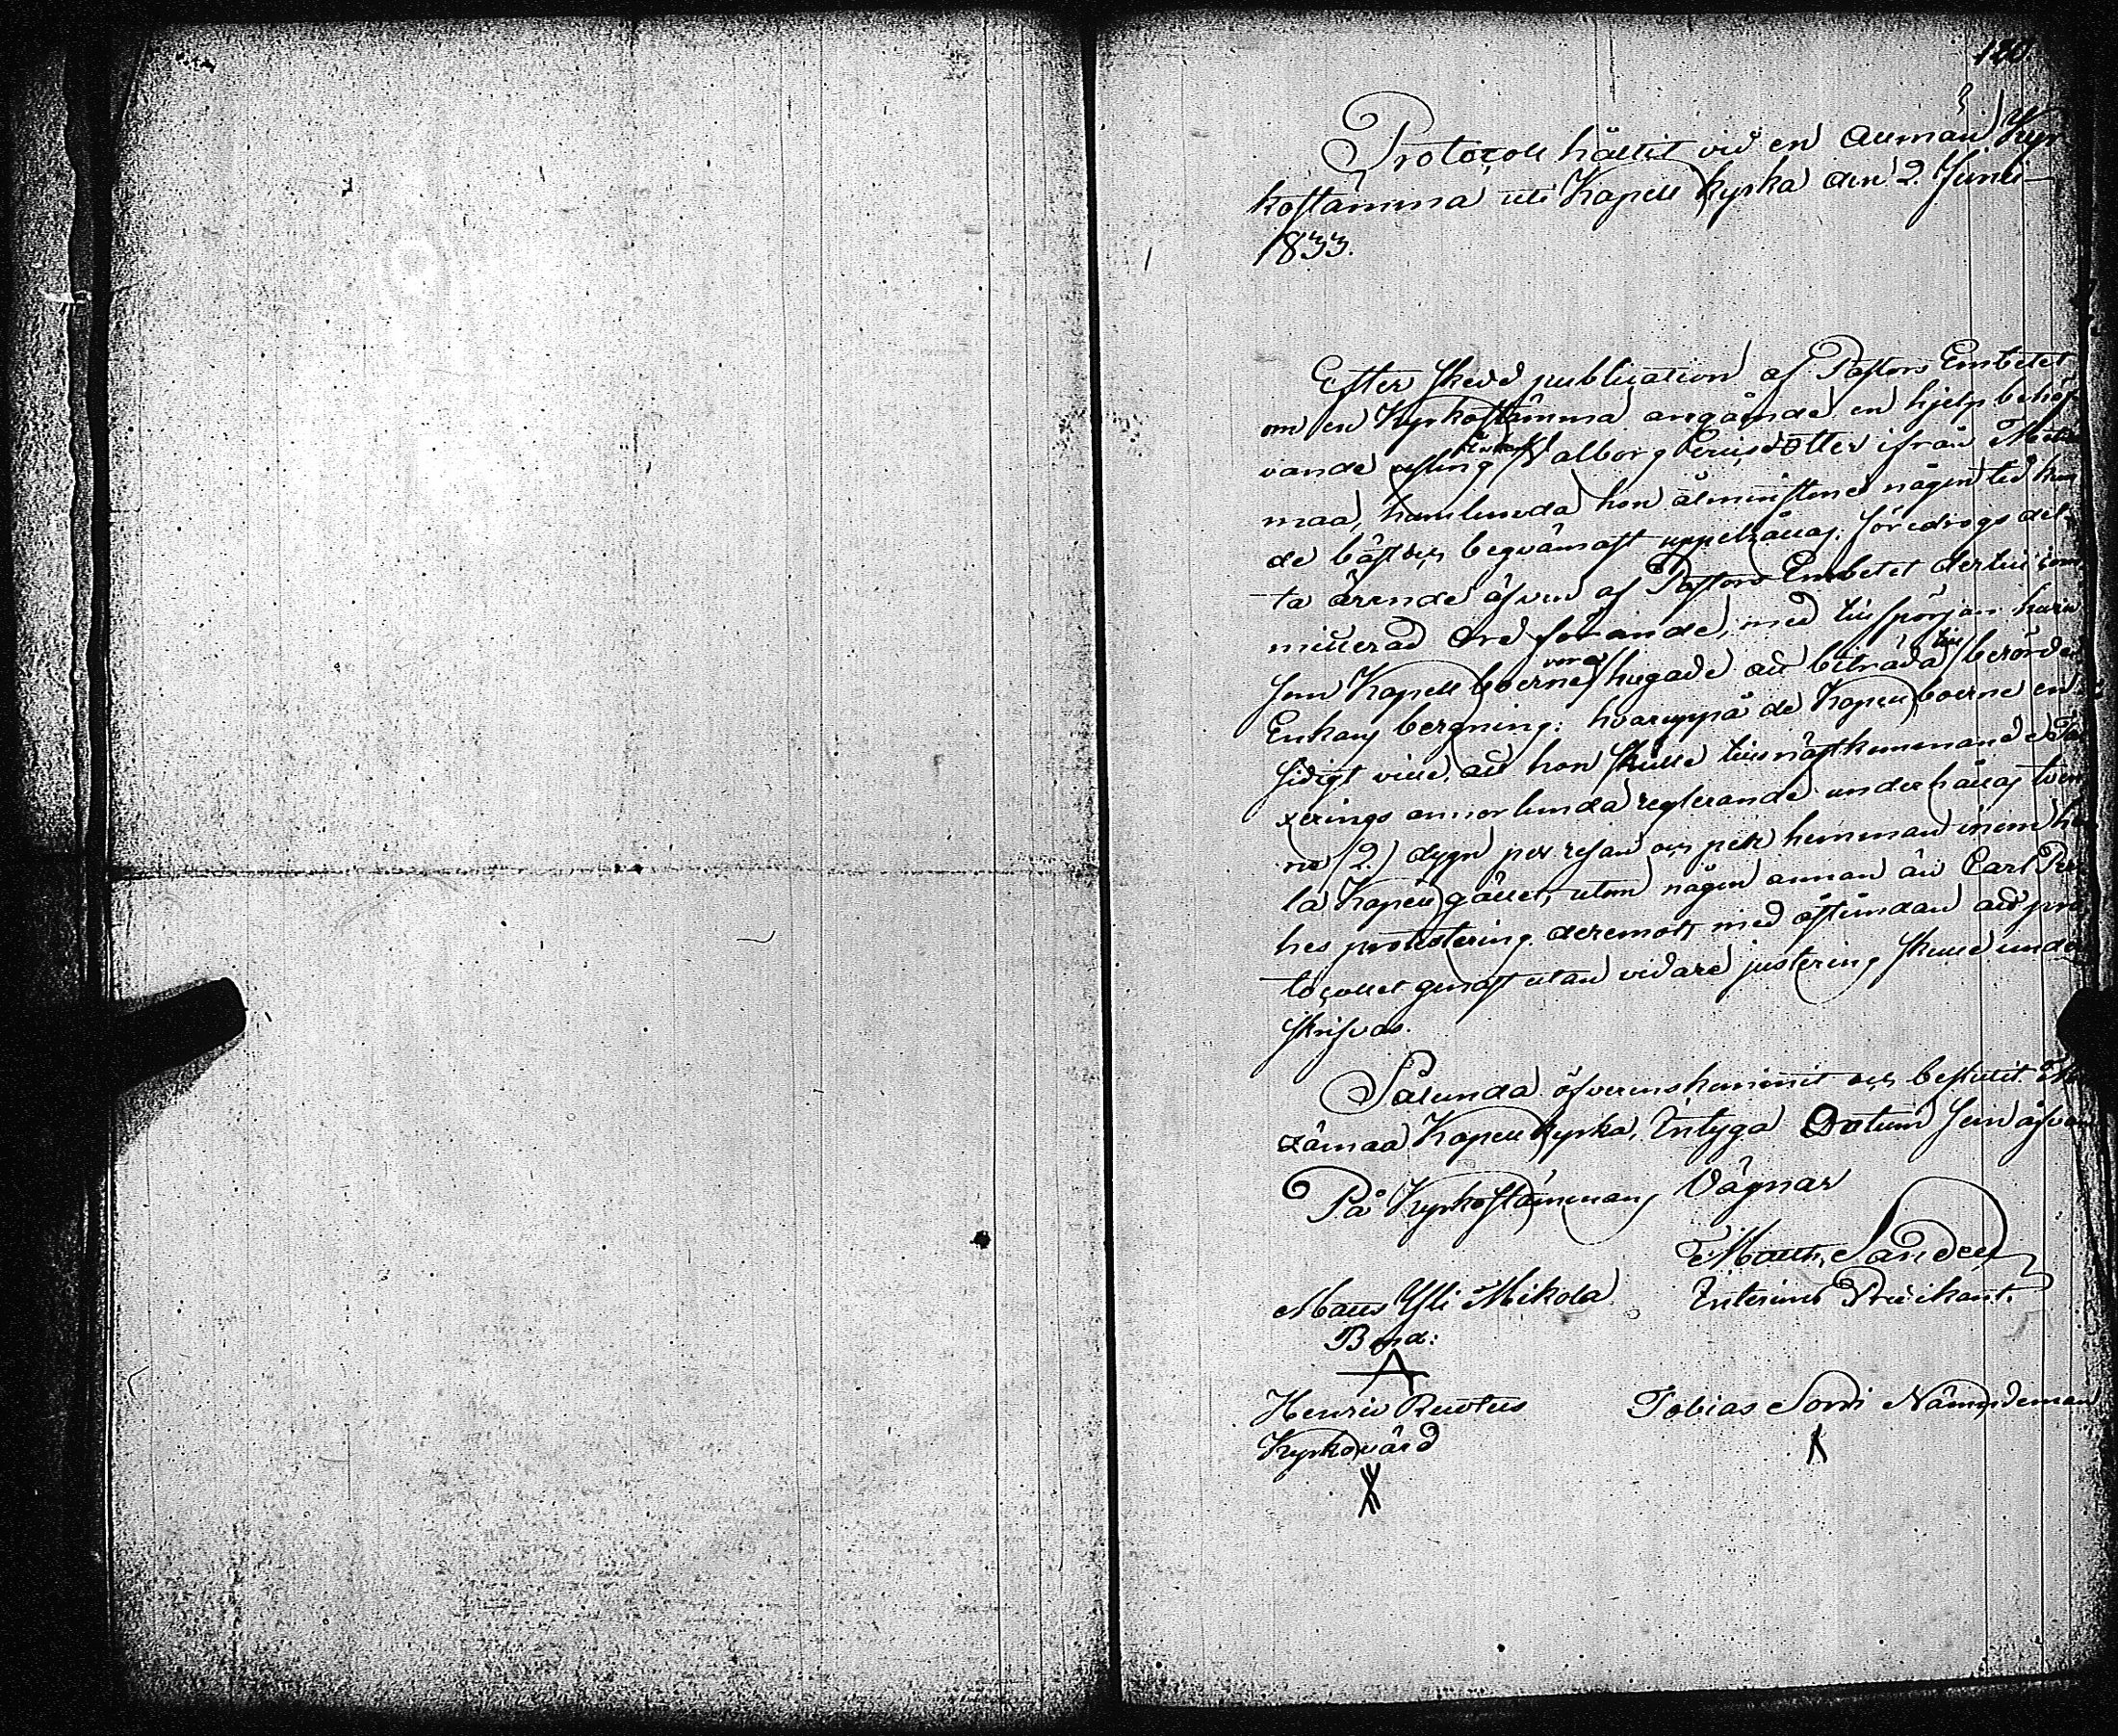 120.
Protocoll hållit vid en allmän Kyr
kostämma uti Kapell kyrka den 2. Junii
1833.
Efter skedd publication af Pastors Embetet
om en Kyrkostämma angående en hjelp behöf
vande usling Enkan Valborg Ericsdotter ifrån
maa, huruleunda hon åtminstone någon tid kun
de bäst och beqvämast uppehållas: föredrogs det
ta ärende äfven af Pastors Embetet dertill com
mitterad ord förande, med tillspörjan huru
som Kapell boerne vore hugade att biträda till berörde
Enkans bergning: hvaruppå de Kapell boerne en
sidigt ville, att hon skulle till nästkommande Ta
xerings annorlunda reglerande underhållas tven
ne (2) dygn per resan och pek hemman inom he
la Kapell gället, utom någon annan än Carl
hes protestering deremot, med åstundan att pro
tocollet genast utan vidare justering skulle under
skrifvas.
Sålunda öfverenskommit och beslutit
Kapell kyrka, Intyga Datum som ofvan
På Kyrkostämmans Vägnar
Matth. Sandell
Matts Yli Mikola Interims Predikant.
Bond:
Henric Ruotus Tobias Sorri Nämndeman
Kyrkovärd